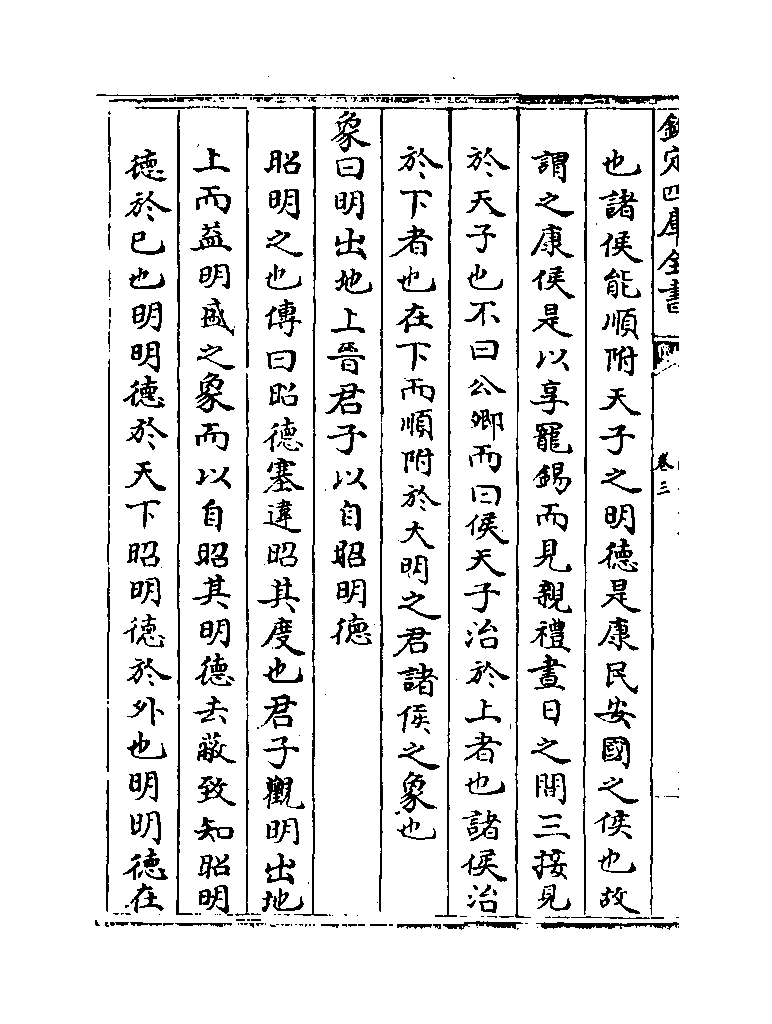 欽定四庫全書
卷三
也諸侯能順附天子之明德是康民安國之侯也故
謂之康侯是以享寵錫而見親禮晝日之間三接見
於天子也不曰公卿而曰侯天子治於上者也諸侯治
於下者也在下而順附於大明之君諸侯之象也
象曰明出地上晉君子以自昭明德
昭明之也傳曰昭德塞違昭其度也君子觀明出地
上而益明盛之象而以自昭其明德去蔽致知昭明
德於已也明明德於天下昭明德於外也明明德在